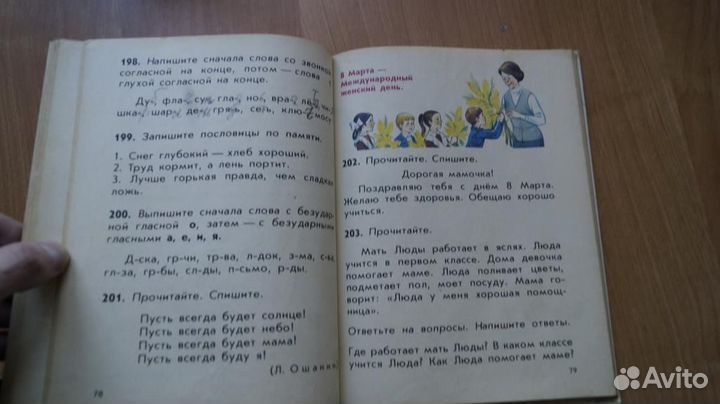 198. Напишите сначала слова со звонкой
согласной на конце, потом — слова с
глухой согласной на конце.
199. Запишите пословицы по памяти.
1. Снег глубокий — хлеб хороший.
2. Труд кормит, а лень портит.
3. Лучше горькая правда, чем сладкая
ложь.
200. Выпишите сначала слова с безудар-
ной гласной о, затем — с безударными
гласными а, е, и, я.
Д-ска, гр-чи, тр-ва, л-док, з-ма,
гл-за, гр-бы, сл-ды, п-сьмо, р-ды.
201. Прочитайте. Спишите.
Пусть всегда будет солнце!
Пусть всегда будет небо!
Пусть всегда будет мама!
Пусть всегда буду я!
(Л. Ошанин)
78
8 Марта —
Международный
женский день.
202. Прочитайте. Спишите.
Дорогая мамочка!
Поздравляю тебя с днём 8 Марта.
Желаю тебе здоровья. Обещаю хорошо
учиться.
203. Прочитайте.
Мать Люды работает в яслях. Люда
учится в первом классе. Дома девочка
помогает маме. Люда поливает цветы,
подметает пол, моет посуду. Мама го-
ворит: «Люда у меня хорошая помощ-
ница».
Ответьте на вопросы. Напишите ответы.
Где работает мать Люды? В каком классе
учится Люда? Как Люда помогает маме?
79
Avito